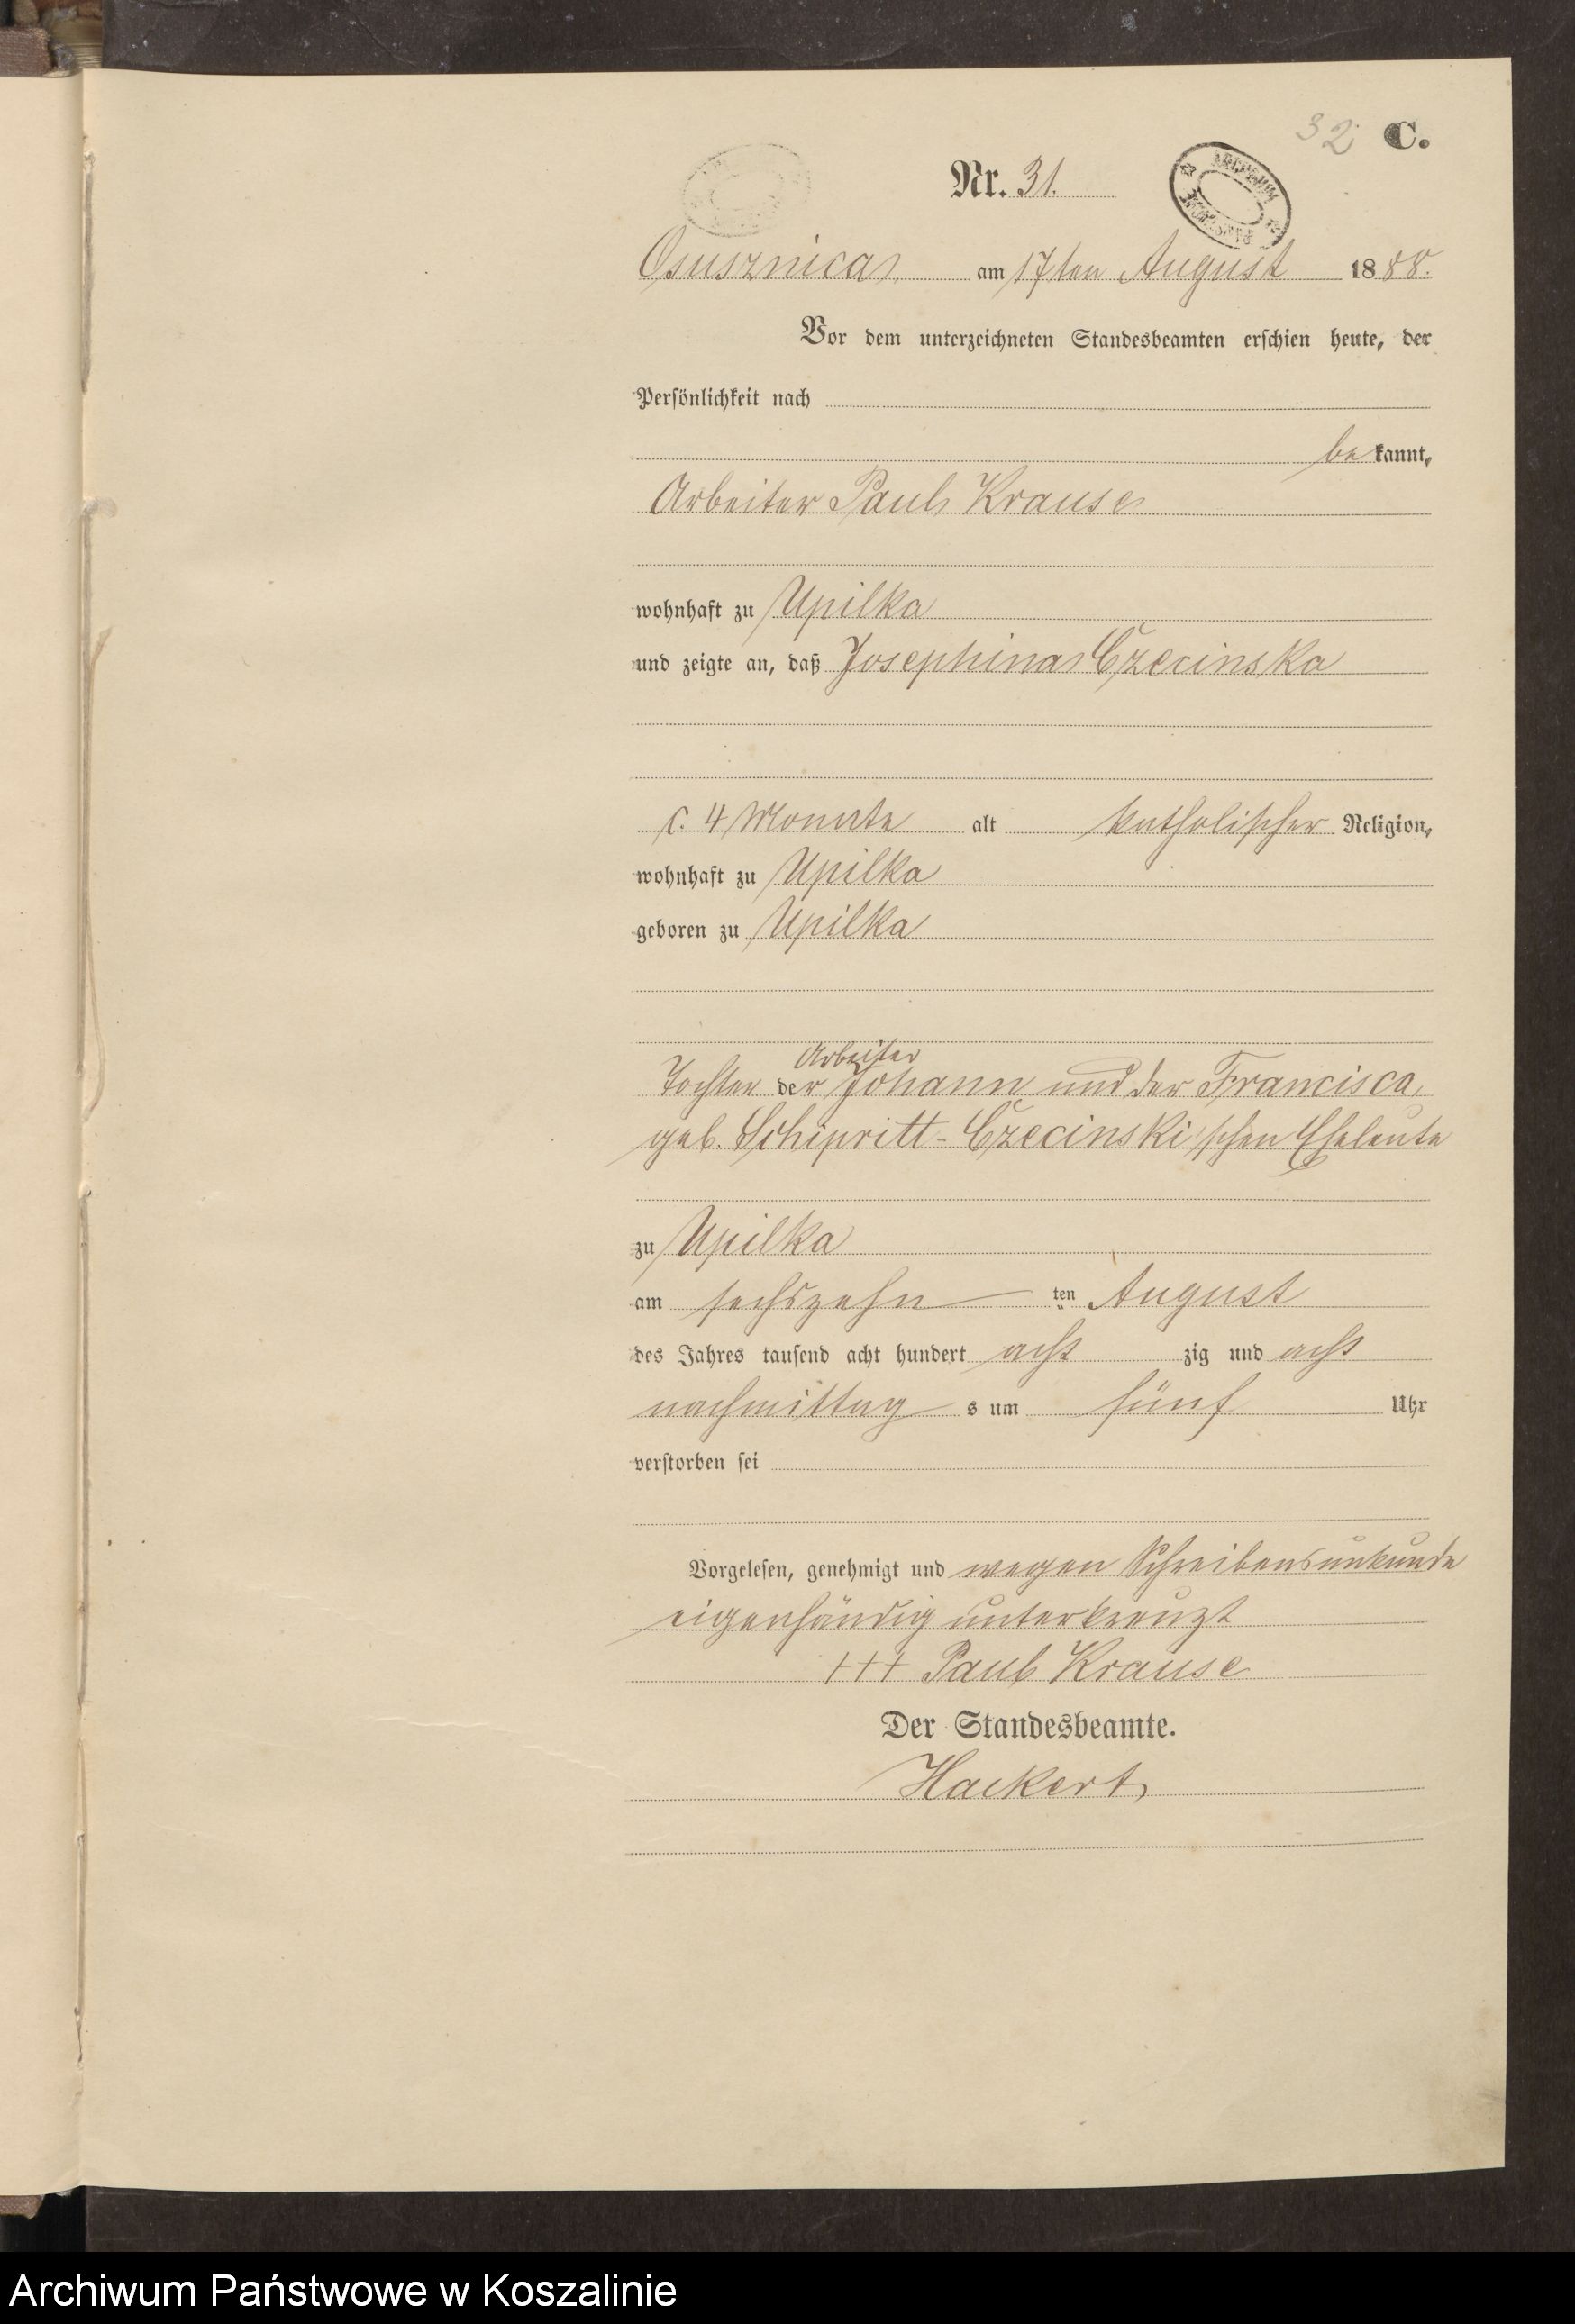 32 C.
Nr. 31.
ARCHIWUM PAŃSTWOWE
Osusznica am 17ten August 1888.
Vor dem unterzeichneten Standesbeamten erschien heute, der
Persönlichkeit nach
bekannt,
Arbeiter Paul Krause
wohnhaft zu Upilka
und zeigte an, daß Josephina Czecinska
c. 4 Monate alt katholischer Religion,
wohnhaft zu Upilka
geboren zu Upilka
Arbeiter
Tochter der Johann und der Francisca
geb. Schipritt-Czecinski'schen Eheleute
zu Upilka
am sechszehn ten August
des Jahres tausend acht hundert acht zig und acht
nachmittag s um fünf Uhr
verstorben sei
Vorgelesen, genehmigt und wegen Schreibensunkunde
eigenhändig unterkreuzt
+++ Paul Krause
Der Standesbeamte.
Hackert
Archiwum Państwowe w Koszalinie